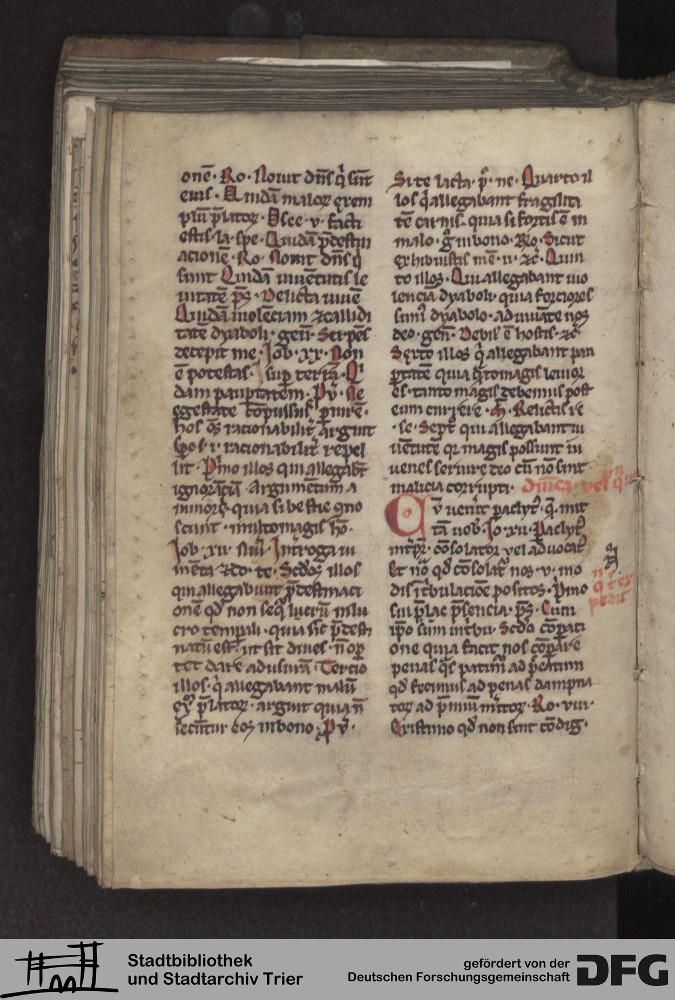 onē · Ro · Nouit dn̄s q̄ sūt
eius · Quidā malor̄ exem
plū p̄lator̄ · Osee · v · facti
estis · la · spe · Quidā p̄desti
acionē · Ro · Nouit dn̄s q̄
sunt Quidam iuuentutis le
uitatē ps̄ · Delicta iuuē
Quidā uiolenciam ⁊ callidi
tatē dyaboli · gen̄ · Serpēs
decepit me · Job · xx · Non
ē potestas · sup̄ terrā · Q
dam paup̄tatem · Pv̄ · Ne
egestate compulsus
hos oēs racionabilit̄ arguit
ſos · i · racionabilit̄ repel
lit · P̄mo illos qui allegabāt
ignorāciā Argumentum a
minore · quia si bestie ɔgno
scunt · multomagis hō ·
Job · xii · Interroga iu
menta ⁊ do · te · Scd̄os illos
qui allegabant p̄destinaci
onē qd̄ non seq̄ lucrū in lu
cro temp̄ali · quia sic p̄desti
natū est · ut sit diues · n̄ opor
tet dare ad usurā Tercio
illos · q̄ allegabant malū
ex̄ p̄lator̄ · arguit quia n̄
secūtur eos in bono · Pv̄ ·
Si te lacta · p̄ · ne · Quarto il
los q̄ allegabant fragilita
tē carnis · quia si fortis ē in
malo · g̊ in bono · Ro · Sicut
exhibuistis mē · ⁊c̄ · Quin
to illos · Qui allegabant uio
lencia dyaboli · quia forciores
sum̄ dyabolo · adiuuāte nos
deo · gen̄ · Debil̄ ē hostis · ⁊c̄
Sexto illos q̄ allegabant pau
p̄tatē quia q̄ntomagis leuior
ēs · tanto magis debemus post
eum currere · Relictis re
· se · Sept̄ qui allegabant iu
uētutē qr magis possunt iu
uenes seruire deo cū nō sint
malicia corrupti · Dn̄ica · vel
Cū venit paclyt̄ · q̄ · mit
tā uob̄ · Jo · xv · Paclyt̄
int̄pr̄ · cōsolator vel aduocat̄
Et nō qd̄ cōsolat̄ nos · v · mo
dis i tribulacioē positos · P̄mo
sui p̄sencia · ps̄ · Cum
ip̄o sum in tribu · Scd̄o cōpati
one quia facit nos cōparare
penas q̄s patim̄ ad p̄catum
qd̄ fecimus ad penas dampna
tor̄ ad p̄miū iustor̄ · Ro · viii ·
Existimo qd̄ non sint cōdig ·
Stadtbibliothek
und Stadtarchiv Trier
gefördert von der
Deutschen Forschungsgemeinschaft
DFG